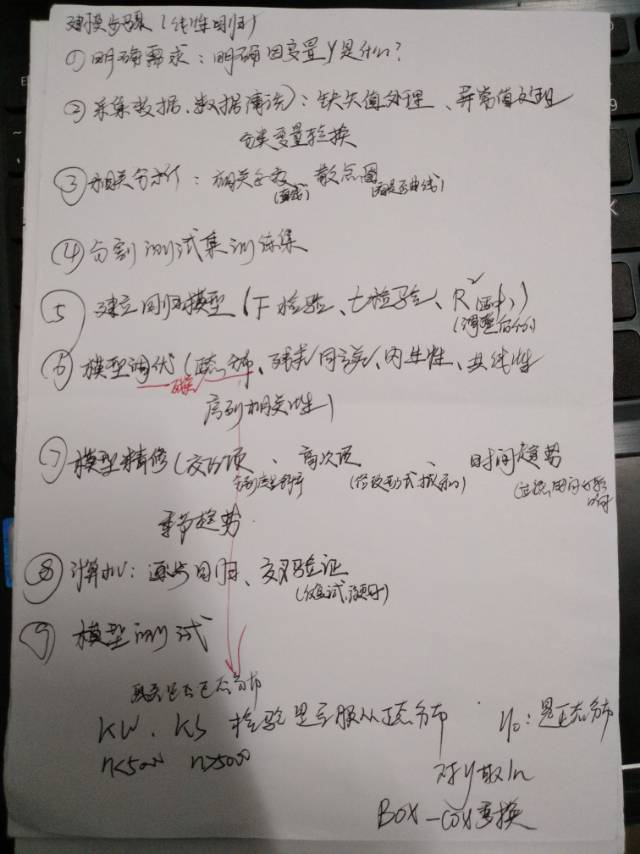 建模步骤(线性回归)
① 明确需求:明确因变量y是什么?
② 采集数据、数据清洗):缺失值处理、异常值处理
分类变量转换
③ 相关分析:相关系数 散点图
④ 分割测试集训练集
⑤ 建立回归模型(F检验、t检验、R²
(调整后的)
⑥ 模型调优(正态分布、残差同方差、内生性、共线性
残差
序列相关性)
⑦ 模型精修(交叉项、高次项、时间趋势
季节趋势
⑧ 计算机:逐步回归、交叉验证
⑨ 模型测试
残差是否正态分布
KW、KS 检验是否服从正态分布 H0:是正态分布
n<5000 n>5000
对y取ln
BOX-COX变换